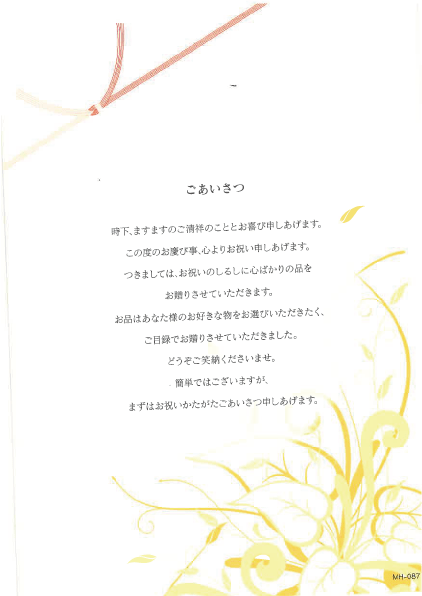 ごあいさつ
時下、ますますのご清祥のこととお喜び申しあげます。
この度のお慶び事、心よりお祝い申しあげます。
つきましては、お祝いのしるしに心ばかりの品を
お贈りさせていただきます。
お品はあなた様のお好きな物をお選びいただきたく、
ご目録でお贈りさせていただきました。
どうぞご笑納くださいませ。
簡単ではございますが、
まずはお祝いかたがたごあいさつ申しあげます。
MH-087